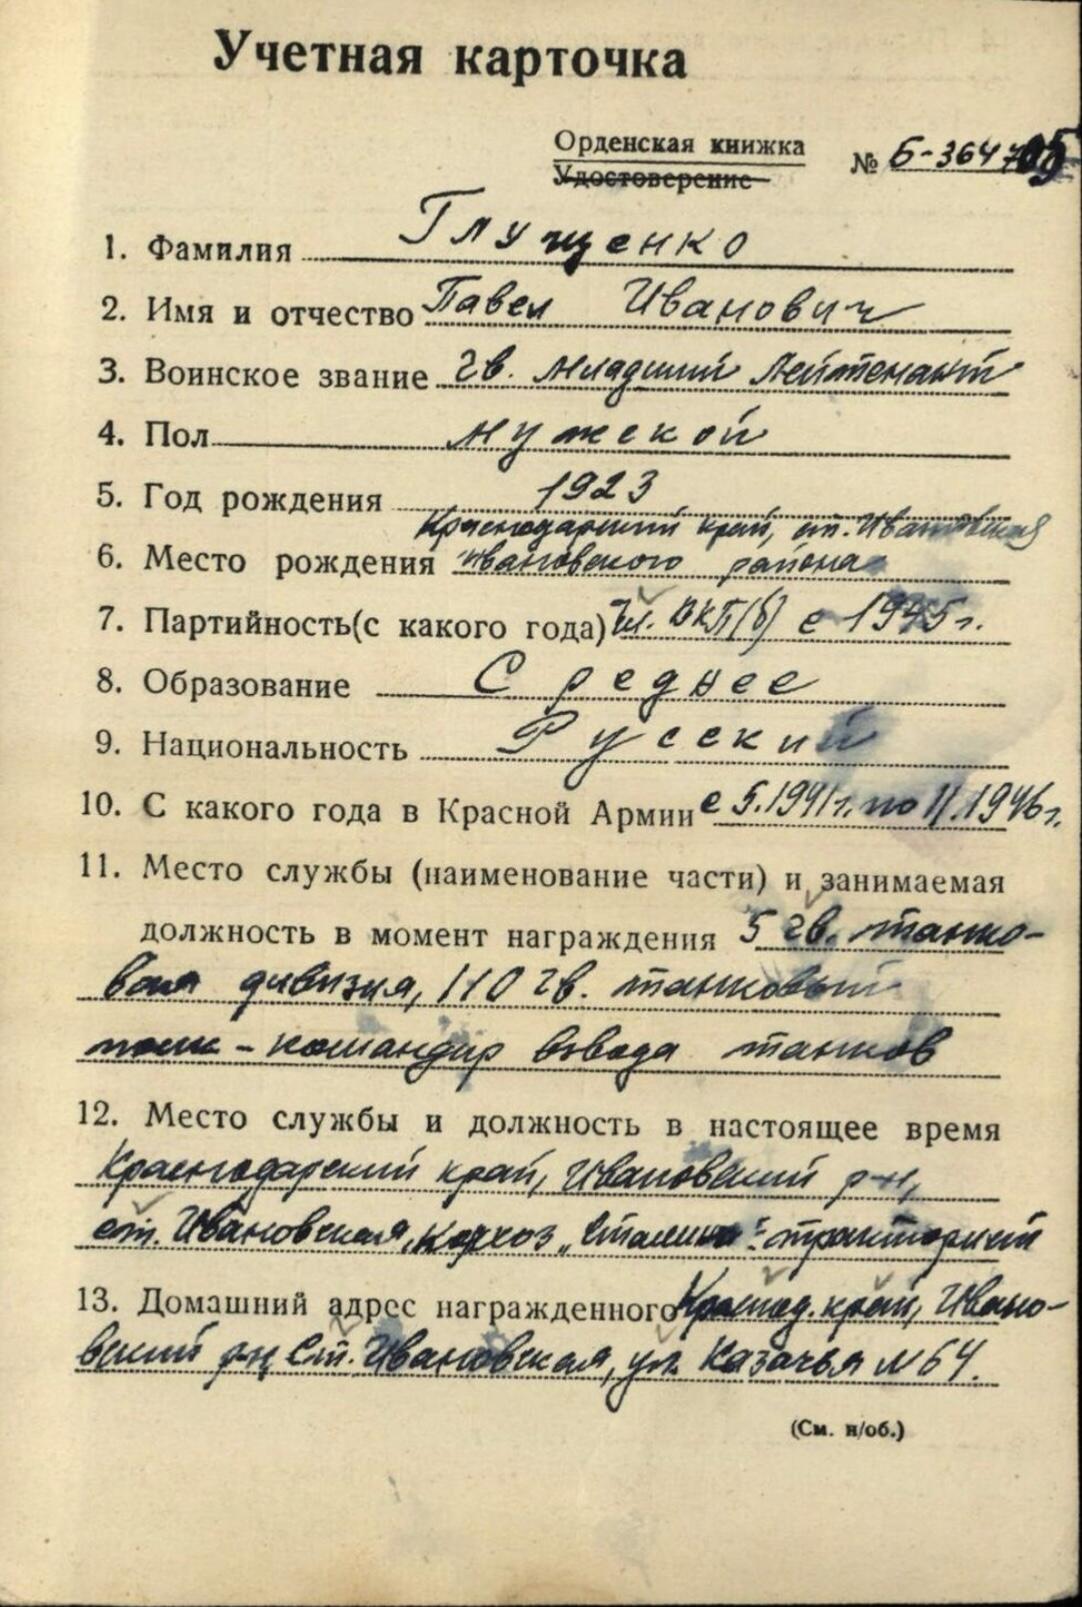 Учетная карточка
Орденская книжка
Удостоверение
№ Б-364705
1. Фамилия Глущенко
2. Имя и отчество Павел Иванович
3. Воинское звание Гв. младший лейтенант
4. Пол мужской
5. Год рождения 1923
Краснодарский край, ст. Ивановская
6. Место рождения Ивановского района
7. Партийность(с какого года) Чл. ВКП(б) с 1945 г.
8. Образование Среднее
9. Национальность Русский
10. С какого года в Красной Армии с 5.1941г. по 11.1946г.
11. Место службы (наименование части) и занимаемая
должность в момент награждения 5 гв. танко-
вая дивизия, 110 гв. танковый
полк - командир взвода танков
12. Место службы и должность в настоящее время
Краснодарский край, Ивановский р-н,
ст. Ивановская, колхоз „Сталина“
13. Домашний адрес награжденного Краснод. край, Ивано-
вский р-н, ст. Ивановская, ул. Казачья № 64.
(См. н/об.)